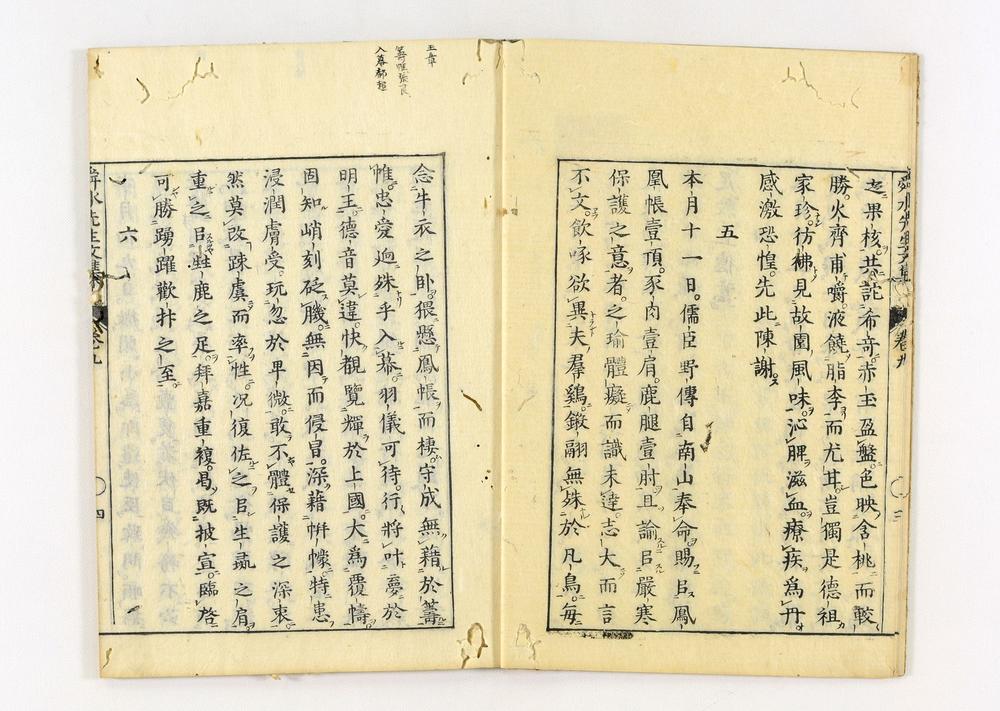 之果核共詫希奇赤玉盈盤色映含桃而較
勝火齊甫嚼液饒脂李而尤甘豈獨是德祖
家珍彷彿見故園風味沁脾滋血療疾為丹
感激恐惶先此陳謝
五
本月十一日儒臣野傳自南山奉命賜㠯鳳
凰帳壹頂豕肉壹肩鹿腿壹肘且諭㠯嚴寒
保護之意者之瑜體癡而識未達志大而言
不文飲啄欲異夫羣鷄鎩翮無殊於凡鳥每
舜水先生文集
卷九
三
王章
籌帷張良
入幕郗超
念牛衣之卧猥懸鳳帳而棲守成無藉於籌
帷忠愛迥殊乎入幕羽儀可待行將叶夢於
明王德音莫違快觀覽輝於上國大為覆幬
固知峭刻砭膱無因而侵冒深藉帡幪特患
浸潤膚受玩忽於早微敢不體保護之深衷
然莫改疎虞而率性况復佐之㠯生彘之肩
重之㠯鹿之足拜嘉重複曷既披宣臨啓
可勝踴躍歡抃之至
六
舜水先生文集
卷九
四